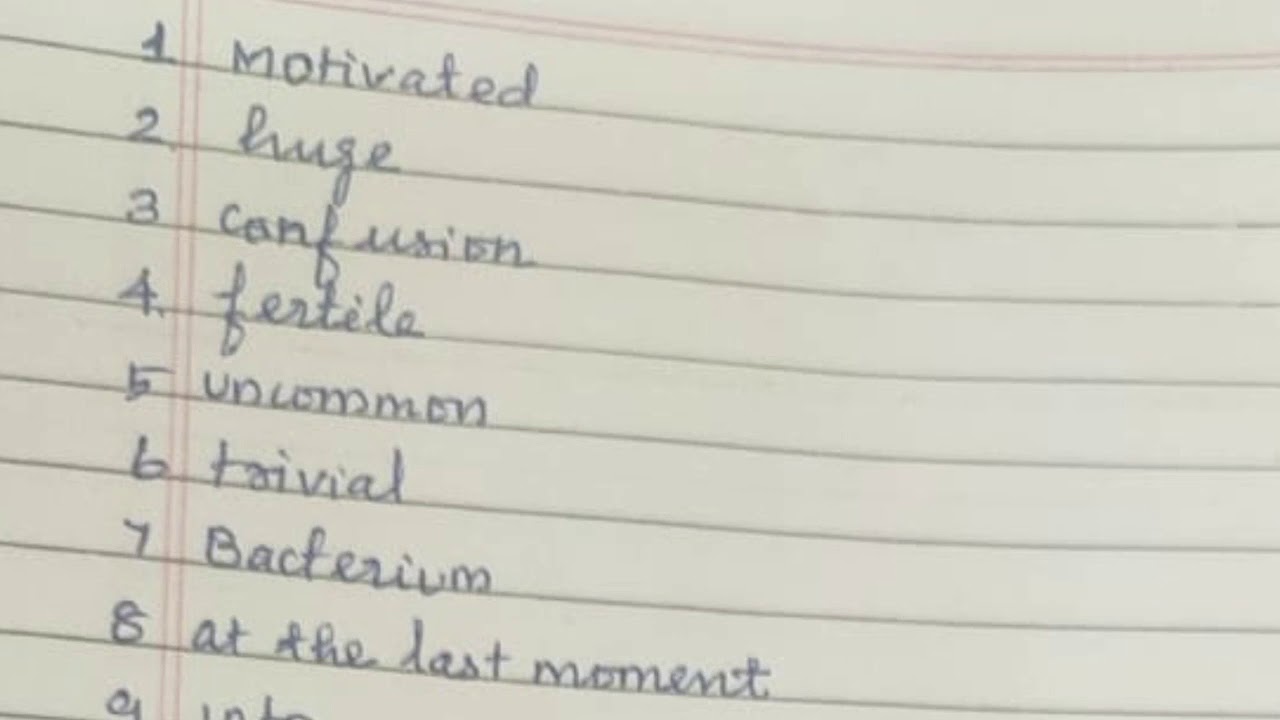 1 Motivated
2. huge
3 confusion
4. fertile
5 uncommon
6 trivial
7 Bacterium
8 at the last moment
9 into